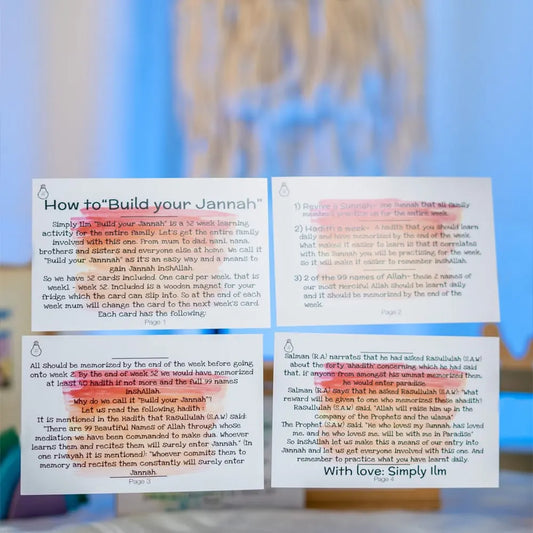 How to "Build your Jannah"
Simply Ilm "Build your Jannah" is a 52 week learning
activity for the entire family. Let's get the entire
family involved with this one. From mum to dad, nani, nana,
brothers and sisters and everyone else at home. We call it
"Build your Jannnah" as it's an easy way and a means to
gain Jannah InshAllah.
So we have 52 cards included. One card per week, that is
week1 - week 52. Included is a wooden magnet for your
fridge which the card can slip into. So at the end of each
week mum will change the card to the next week's card.
Each card has the following:
Page 1
1) Revive a Sunnah- one Sunnah that all family
members practice us for the entire week.
2) Hadith a week- A hadith that you should learn
daily and have memorized by the end of the week.
What makes it easier to learn is that it correlates
with the Sunnah you will be practising for the week.
So it will make it easier to remember inshAllah.
3) 2 of the 99 names of Allah- these 2 names of
our most Merciful Allah should be learnt daily
and it should be memorized by the end of the
week.
Page 2
All should be memorized by the end of the week before going
onto week 2. By the end of week 52 we would have memorized
at least 40 hadith if not more and the full 99 names
inshAllah.
Why do we call it "Build your Jannah"?
Let us read the following hadith:
It is mentioned in the Hadith that Rasulullah (S.A.W) said:
"There are 99 Beautiful Names of Allah through whose
mediation we have been commanded to make dua. Whoever
learns them and recites them will surely enter Jannah." (In
one riwayah it is mentioned): "Whoever commits them to
memory and recites them constantly will surely enter
Jannah.
Page 3
Salman (R.A) narrates that he had asked Rasullullah (S.A.W)
about the forty 'ahadith' concerning which he had said
that, if anyone from amongst his ummat memorized them,
he would enter paradise.
Salman (R.A) says that he asked Rasullulah (S.A.W) "What
reward will be given to one who memorizes these ahadith?
Rasullullah (S.A.W) said: "Allah will raise him up in the
company of the Prophets and the ulama"
The Prophet (S.A.W) said: "He who loves my Sunnah, has loved
me, and he who loves me, will be with me in Paradise"
So inshAllah let us make this a means of our entry into
Jannah and let us get everyone involved with this one. And
remember to practice what you have learnt daily.
With love: Simply Ilm
Page 4